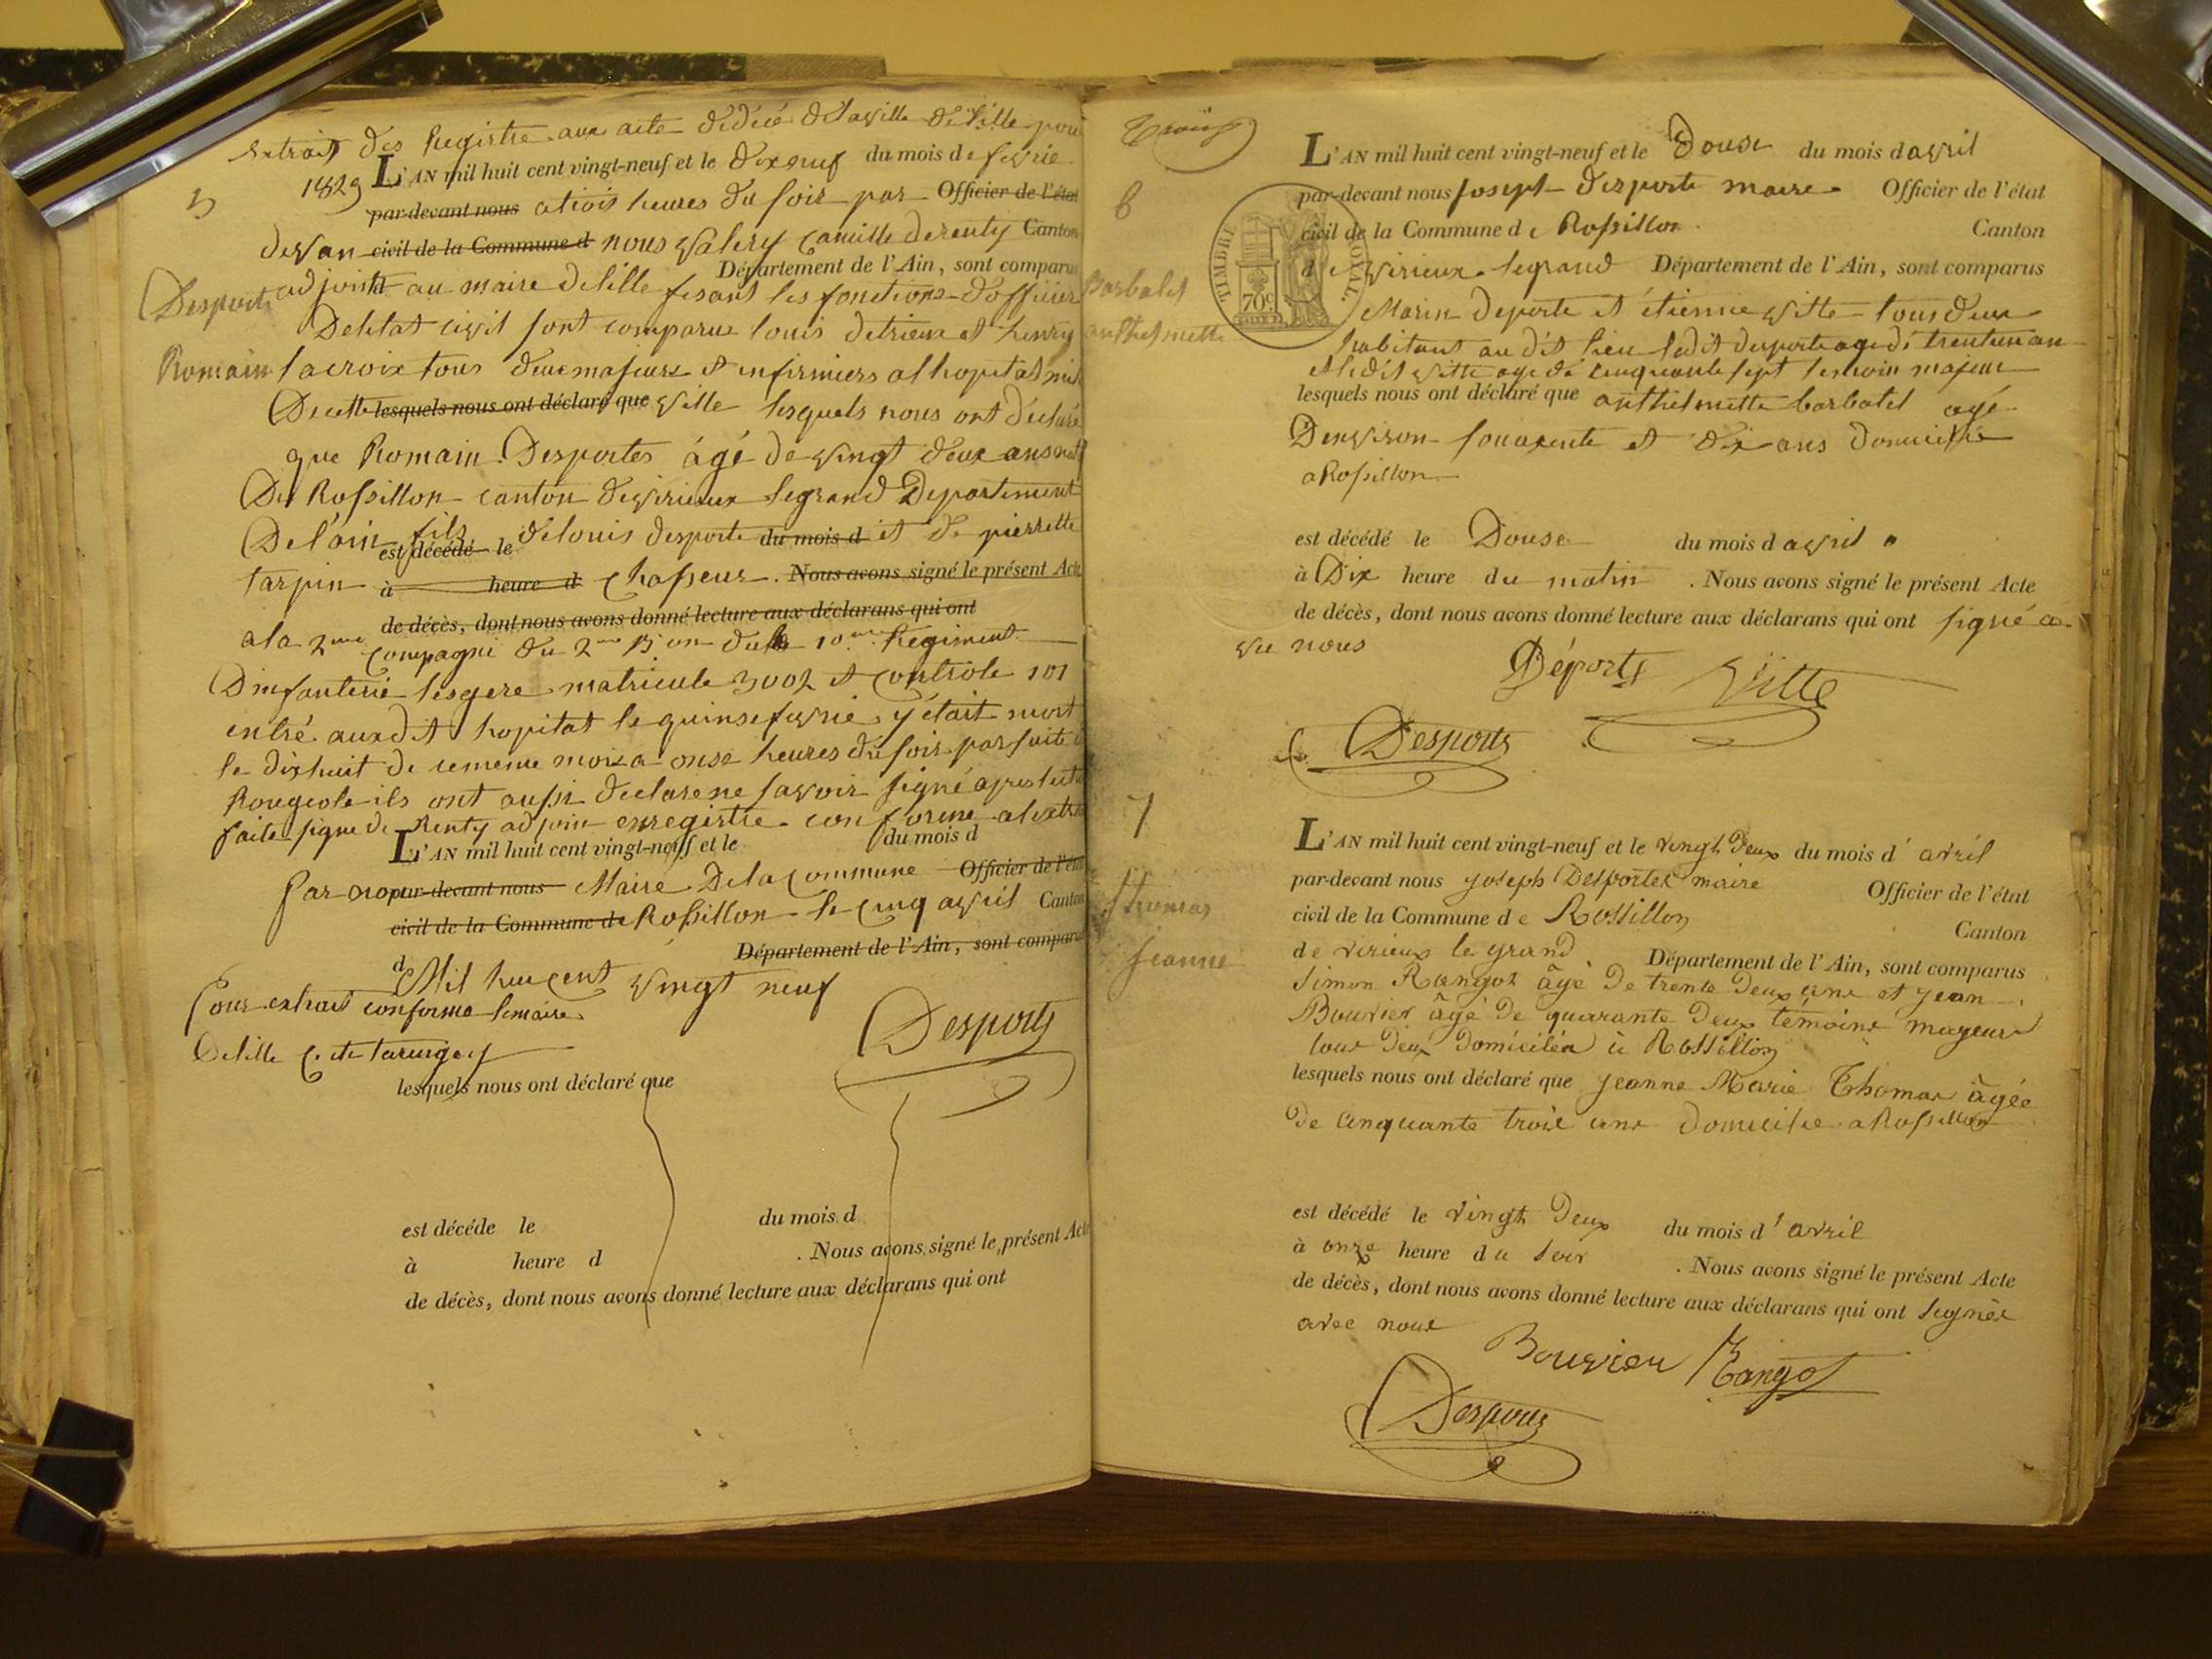 extrait des Registre aux acte dedicé delaville delille pour
1829 L'AN mil huit cent vingt-neuf et le dixneuf du mois de fevrie
5
par-devant nous atrois heures du soir par Officier de l'état
devan civil de la Commune d nous valery Camille derenty Canton
Département de l'Ain, sont comparus
Desporte
adjoint d au maire delille fesant les fonctions dofficier
Deletat civil sont comparus louis detrieux et henry
Romain
lacroix tous deux majeurs et infirmiers al hopital mil
Decette lesquels nous ont déclaré que ville lesquels nous ont déclaré
que Romain Desportes âgé de vingt deux ans natif
De Rossillon canton devirieux legrand Departement
Del'ain fils delouis desporte du mois d et de pierrette
est décédé le
tarpin à heure d Chasseur. Nous avons signé le présent Acte
de décès, dont nous avons donné lecture aux déclarans qui ont
ala 2me Compagni du 2me Bon du 10me Regiment
Dinfanterie legere matricule 3002 et Controle 101
entré audit hopital le quinse fevrie y était mort
le dixhuit de cememe mois a onse heures du soir par suite d
Rougeole ils ont aussi declare ne savoir signé apres lect
faite signe de Renty adjoin enregistre conforme al extrai
L'AN mil huit cent vingt-neuf et le du mois d
Par nous par-devant nous Maire Dela Commune Officier de l'état
civil de la Commune de Rossillon le Cinq avril Canton
Département de l'Ain, sont comparus
d Mil huit Cent vingt neuf
Pour extrait conforme lemaire
Desporte
Delille
lesquels nous ont déclaré que
est décéde le du mois d
à heure d . Nous avons signé le présent Acte
de décès, dont nous avons donné lecture aux déclarans qui ont
Trois
6
L'AN mil huit cent vingt-neuf et le Douse du mois d avril
par-devant nous Joseph desporte maire Officier de l'état
civil de la Commune d e Rossillon Canton
TIMBRE ROYAL.
70c
d e virieux legrand Département de l'Ain, sont comparus
Barbalet
anthelmette
Marin deporte et étienne vitte tous deux
habitant au dit lieu ledit desporte age de trenteun an
et ledit vitte age de cinquante sept temoin majeur
lesquels nous ont déclaré que anthelmette barbalet agé
Denviron souaxente et dix ans domicilié
a Rossillon
est décédé le Douse du mois d avril
à Dix heure du matin . Nous avons signé le présent Acte
de décès, dont nous avons donné lecture aux déclarans qui ont signé a
vec nous
Déporte Vitte
Desporte
7
L'AN mil huit cent vingt-neuf et le vingt Deux du mois d' avril
par-devant nous joseph Desportes maire Officier de l'état
civil de la Commune d e Rossillon Canton
thomas
Jeanne
de virieux le grand Département de l'Ain, sont comparus
Simon Rangot âgé De trente Deux ans et jean
Bouvier âgé De quarante Deux témoins mageurs
tous Deux Domiciliés à Rossillon
lesquels nous ont déclaré que jeanne Marie Thomas âgée
De Cinquante trois ans Domicilié a Rossillon
est décédé le vingt Deux du mois d' avril
à onze heure du soir . Nous avons signé le présent Acte
de décès, dont nous avons donné lecture aux déclarans qui ont signés
avec nous
Bouvier Rangot
Desporte